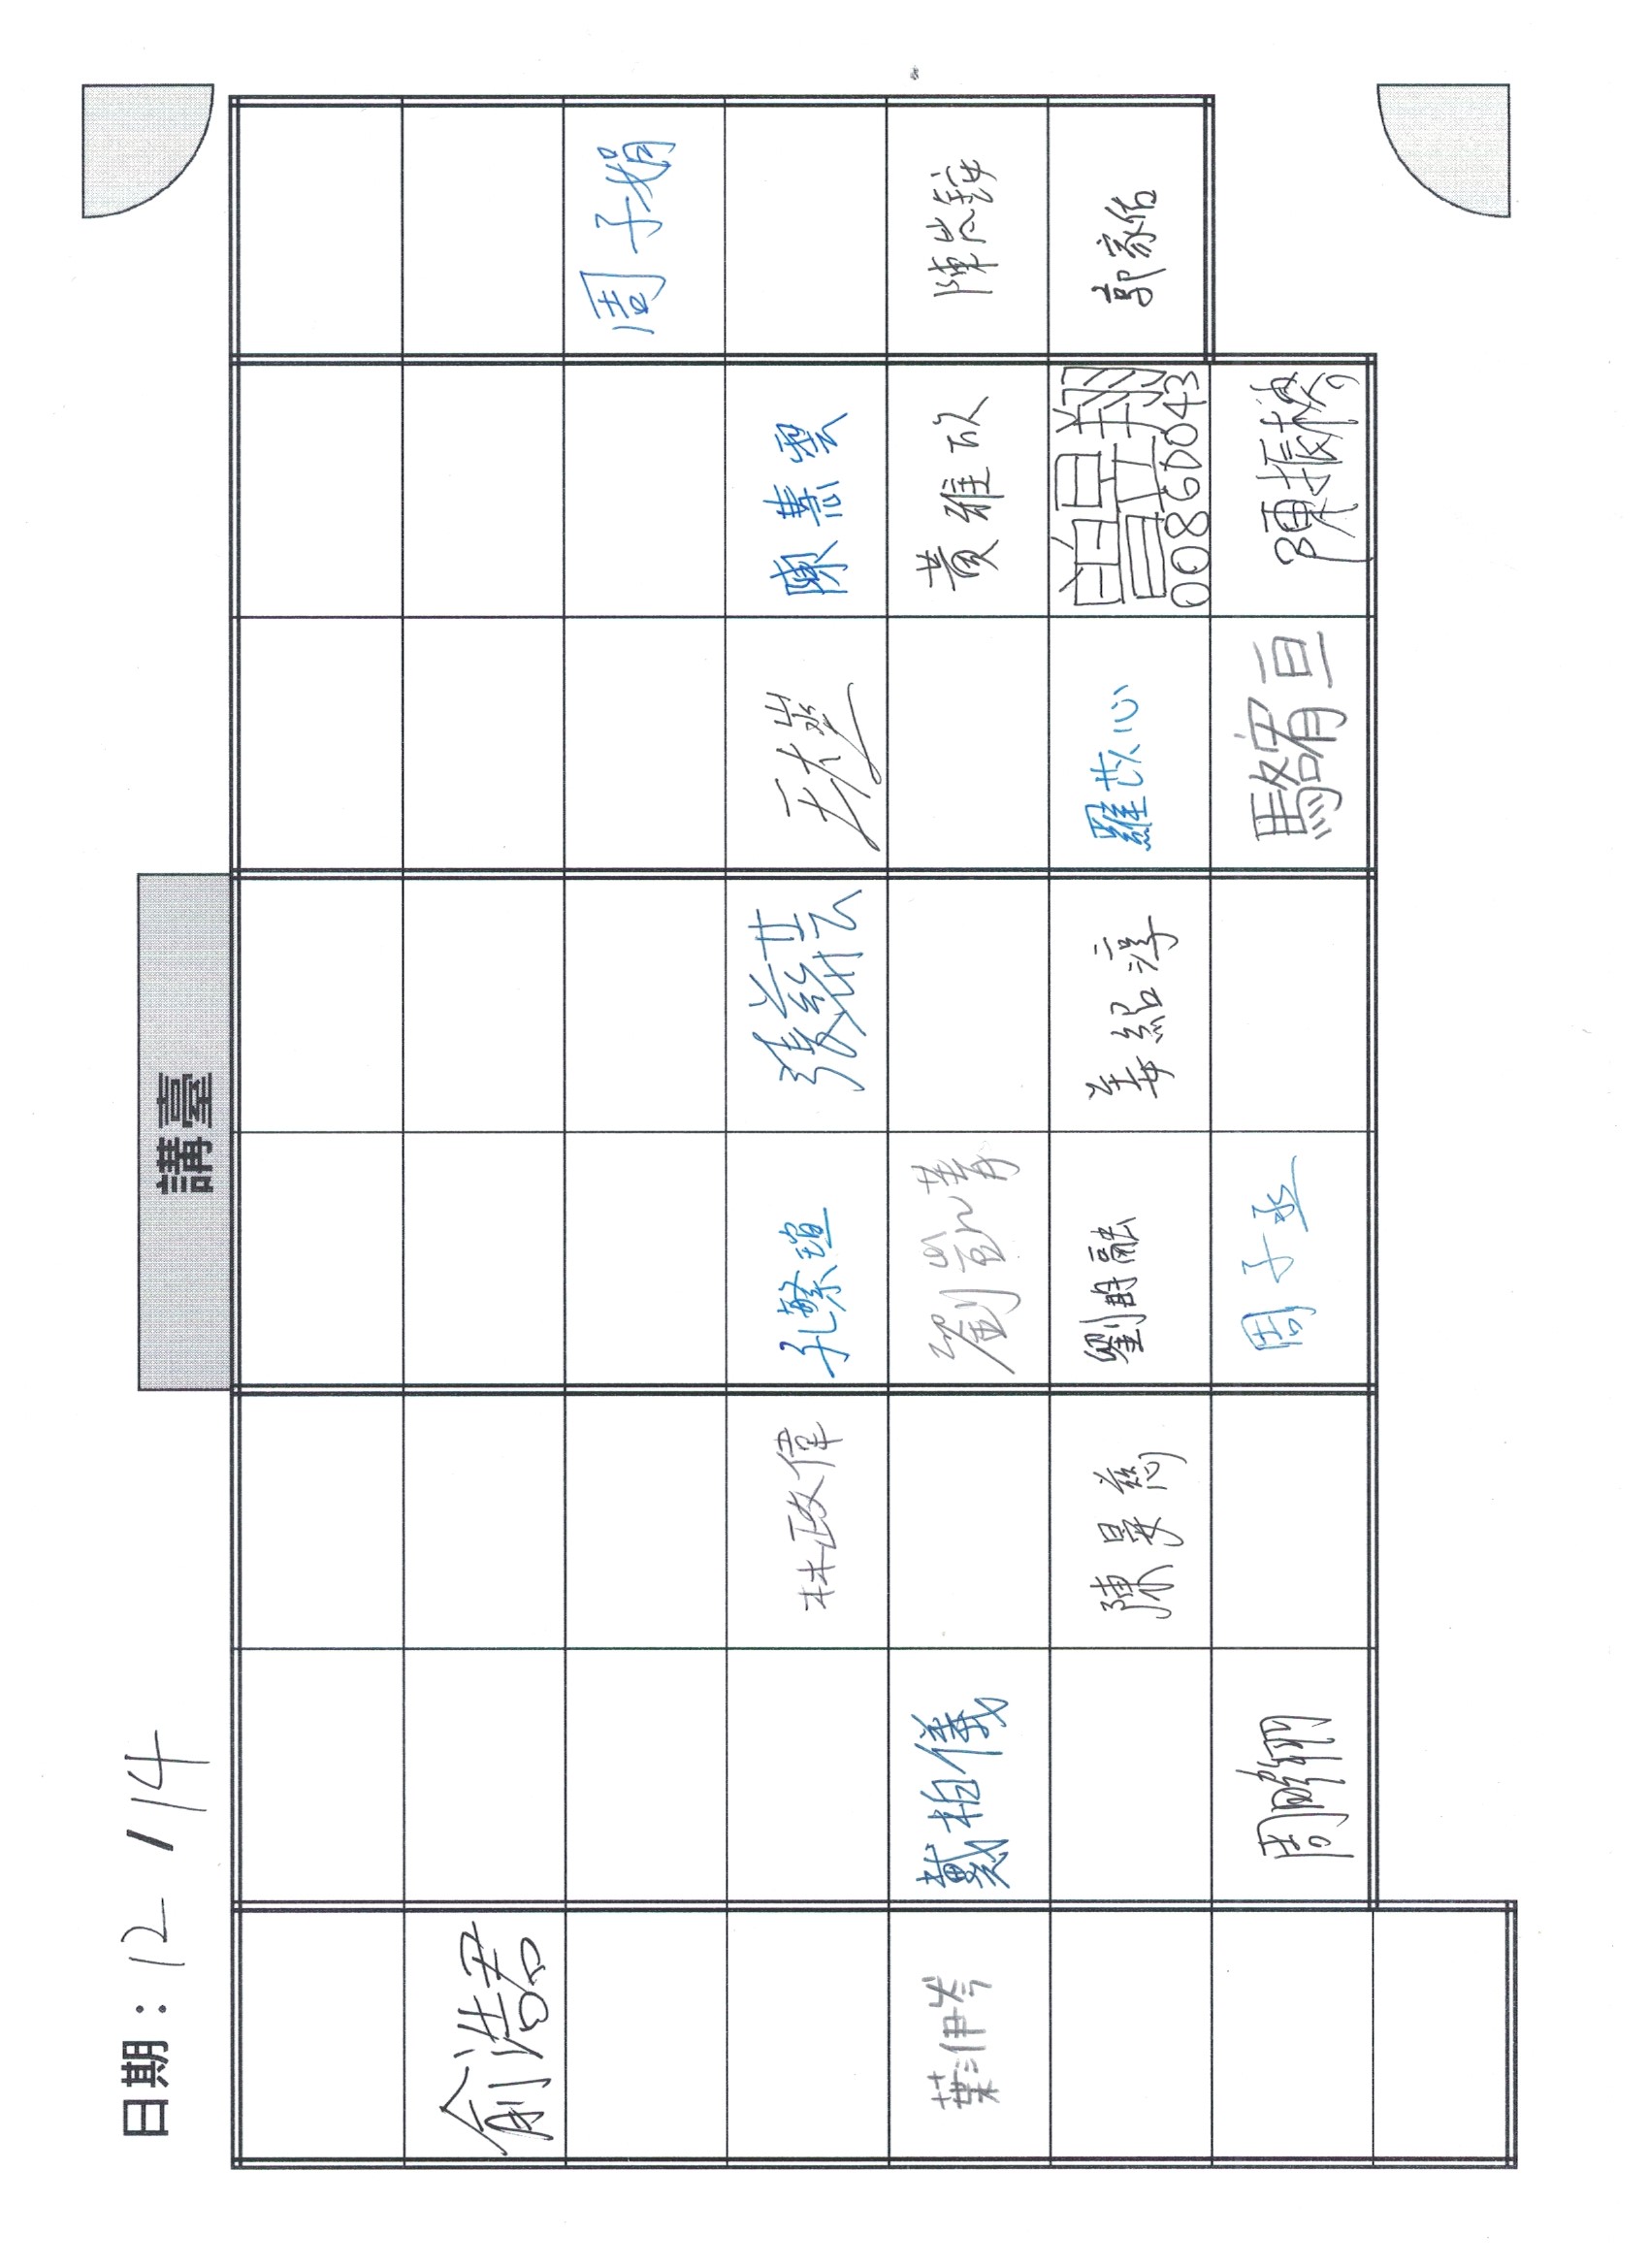 日期：12/14
講臺
俞浩君
周子娟
林政偉
孔繁瑄
張慈芸
陳憓雲
葉洢岑
戴柏儀
劉凱菁
黃雅欣
陳岊銨
陳晏慈
劉冄融
姜紹淳
羅苡心
曾昱翔
00860043
郭家佑
周鵬翔
周子丞
駱宥亘
陳振